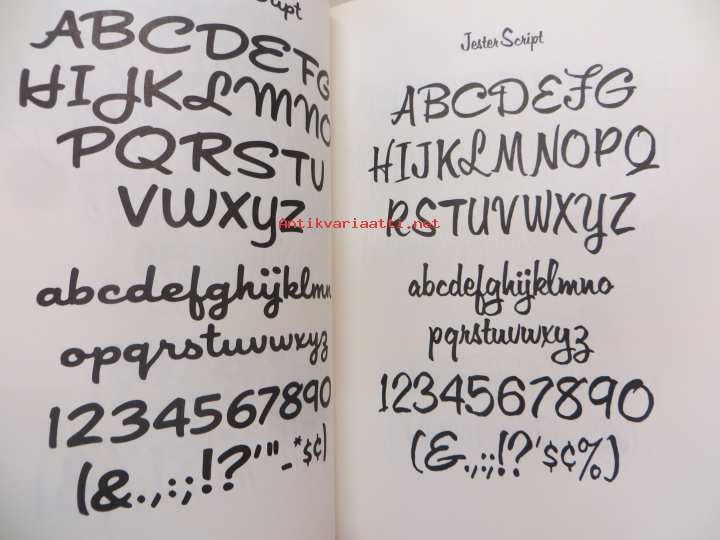 ABCDEFG
HIJKLMNO
PQRSTU
VWXYZ
abcdefghijklmn
opqrstuvwxyz
1234567890
(&.,:;!?'"-*$¢)
Jester Script
ABCDEFG
HIJKLMNOPQ
RSTUVWXYZ
abcdefghijklmno
pqrstuvwxyz
1234567890
(&.,:;!?'$¢%)
Antikvariaatti.net